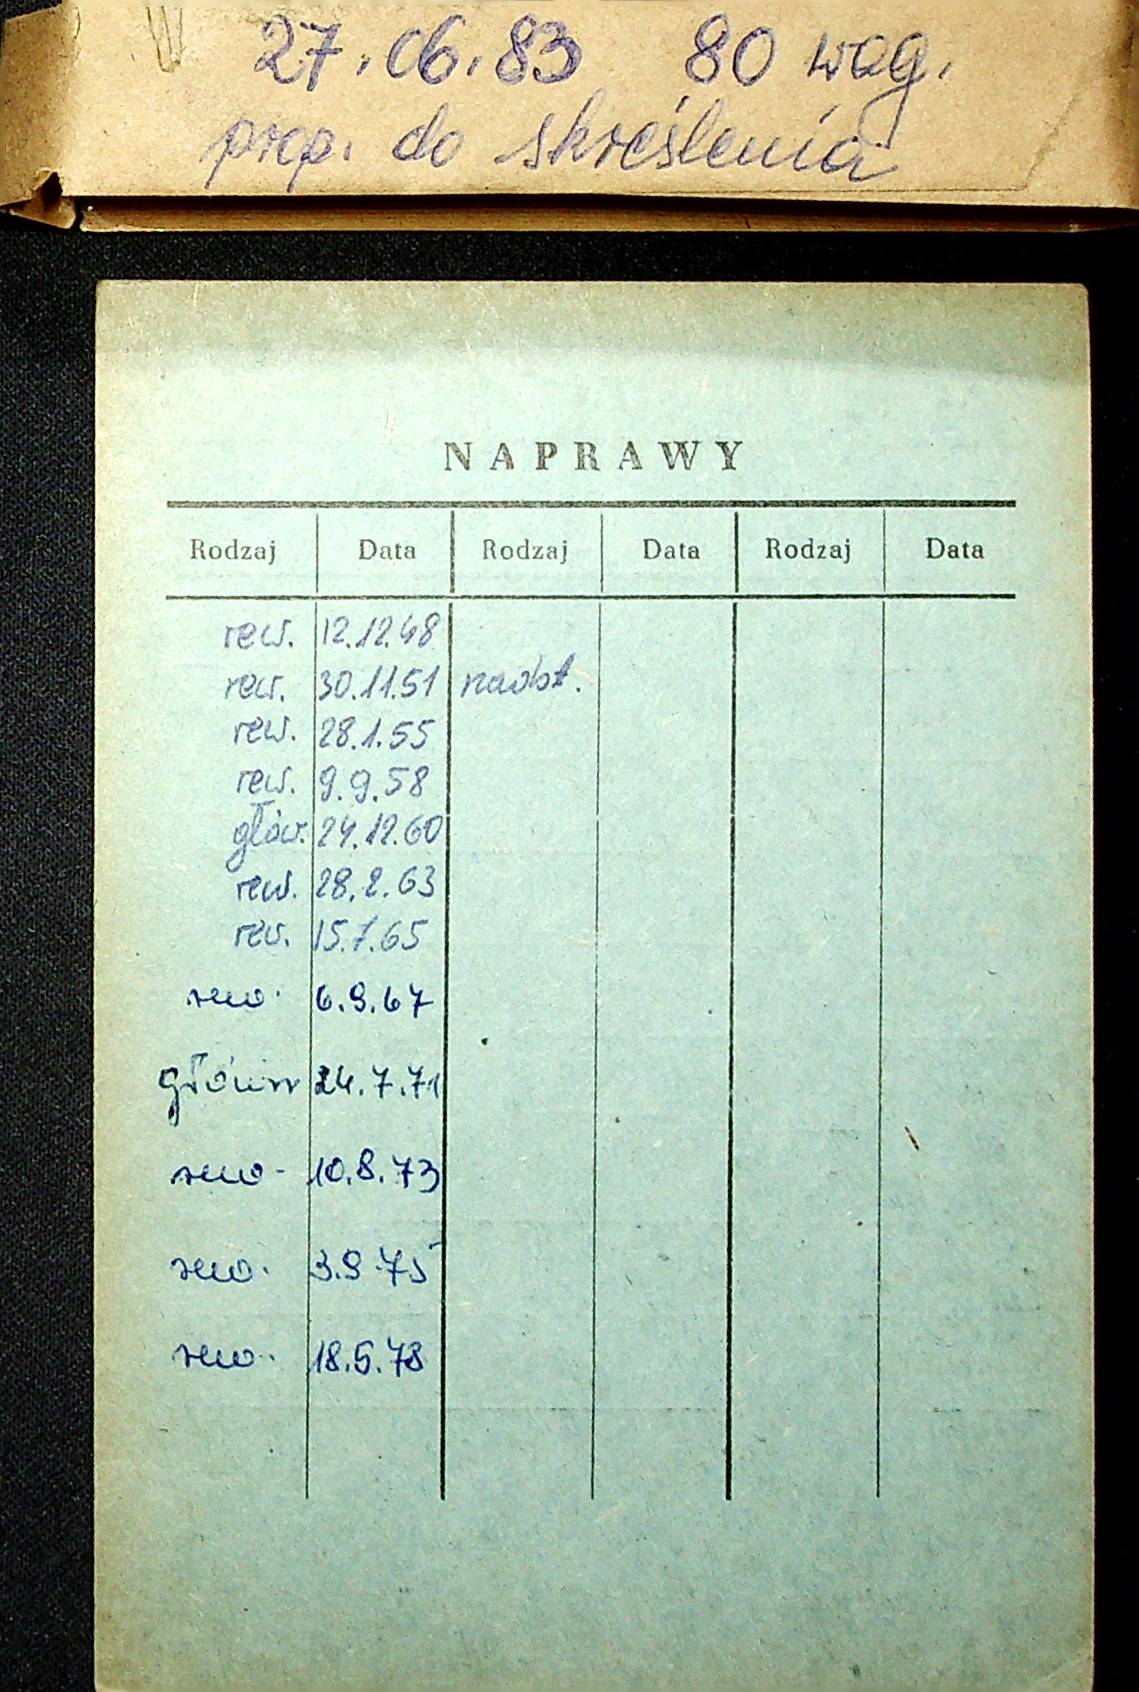 27.06.83 80 wag.
prop. do skreślenia
NAPRAWY
Rodzaj Data Rodzaj Data Rodzaj Data
rew. 12.12.48
rew. 30.11.51 nadbt.
rew. 28.1.55
rew. 9.9.58
głów. 24.12.60
rew. 28.2.63
rew. 15.7.65
rew. 6.9.67
główn 24.7.71
rew. 10.8.73
rew. 3.9.75
rew. 18.5.78